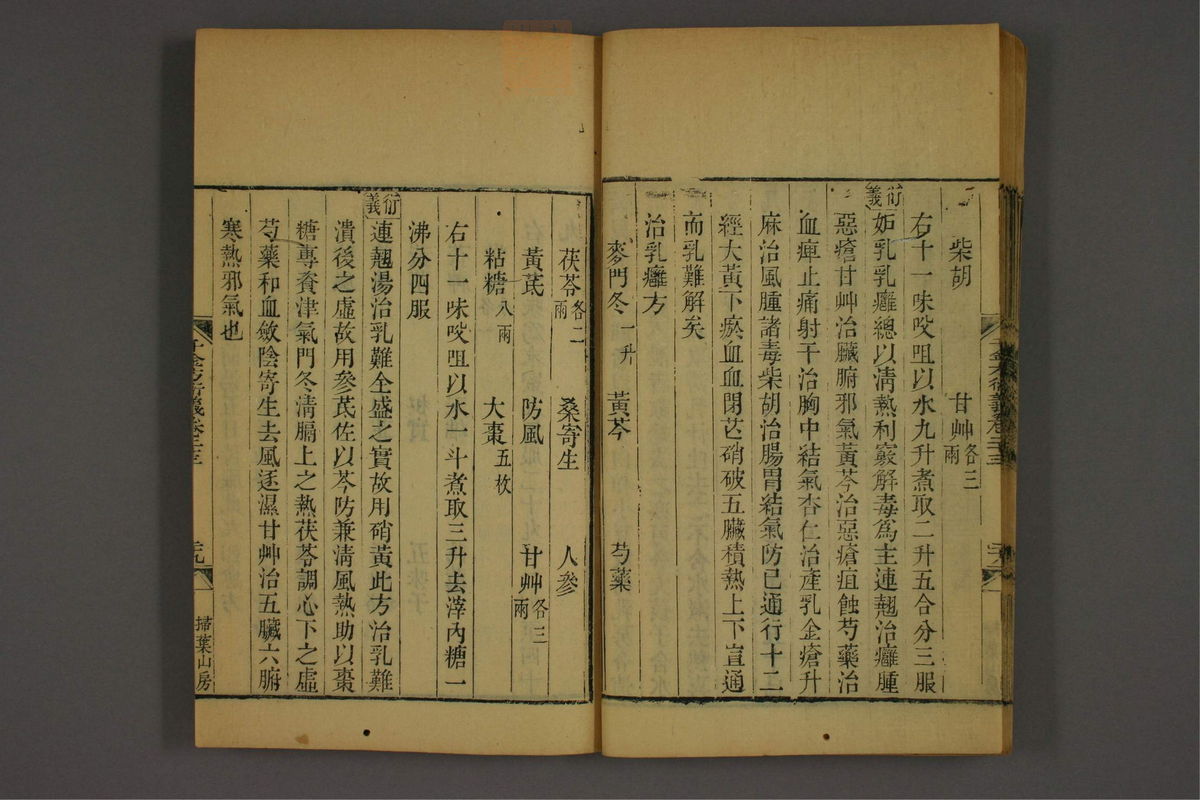 柴胡 甘艸各三兩
右十一味㕮咀以水九升煮取二升五合分三服
衍義
妬乳乳癰總以清熱利竅解毒爲主連翹治癰腫
惡瘡甘艸治臟腑邪氣黃芩治惡瘡疽蝕芍藥治
血痺止痛射干治胸中結氣杏仁治產乳金瘡升
麻治風腫諸毒柴胡治腸胃結氣防已通行十二
經大黃下瘀血血閉芒硝破五臟積熱上下宣通
而乳難解矣
治乳癰方
麥門冬一升 黃芩 芍藥
茯苓各二兩 桑寄生 人參
黃芪 防風 甘艸各三兩
粘糖八兩 大棗五枚
右十一味㕮咀以水一斗煮取三升去滓內糖一
沸分四服
衍義
連翹湯治乳難全盛之實故用硝黃此方治乳難
潰後之虛故用參芪佐以芩防兼清風熱助以棗
糖專資津氣門冬清膈上之熱茯苓調心下之虛
芍藥和血斂陰寄生去風逐濕甘艸治五臟六腑
寒熱邪氣也
千金方衍義卷二十三
二十九
掃葉山房